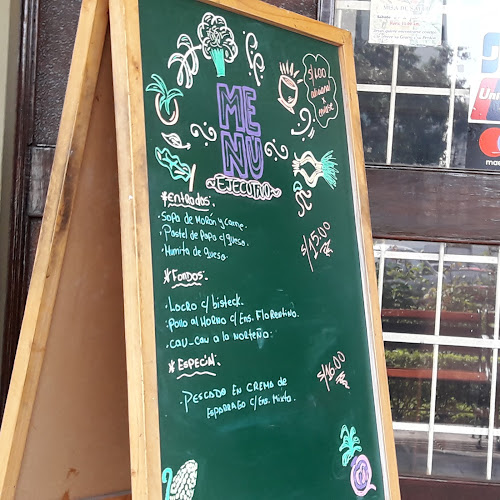 MENÚ
EJECUTIVO
S/1.00
adicional
x
envase
*Entradas.
·Sopa de Morón y carne.
·Pastel de papa c/queso.
·Humita de queso.
S/15.00
*Fondos.
·Locro c/ bisteck.
·Pollo al Horno c/ Ens. Florentino.
·Cau-Cau a la Norteña.
*Especial.
S/16.00
·Pescado en crema de
Esparrago c/Ens. Mixta.